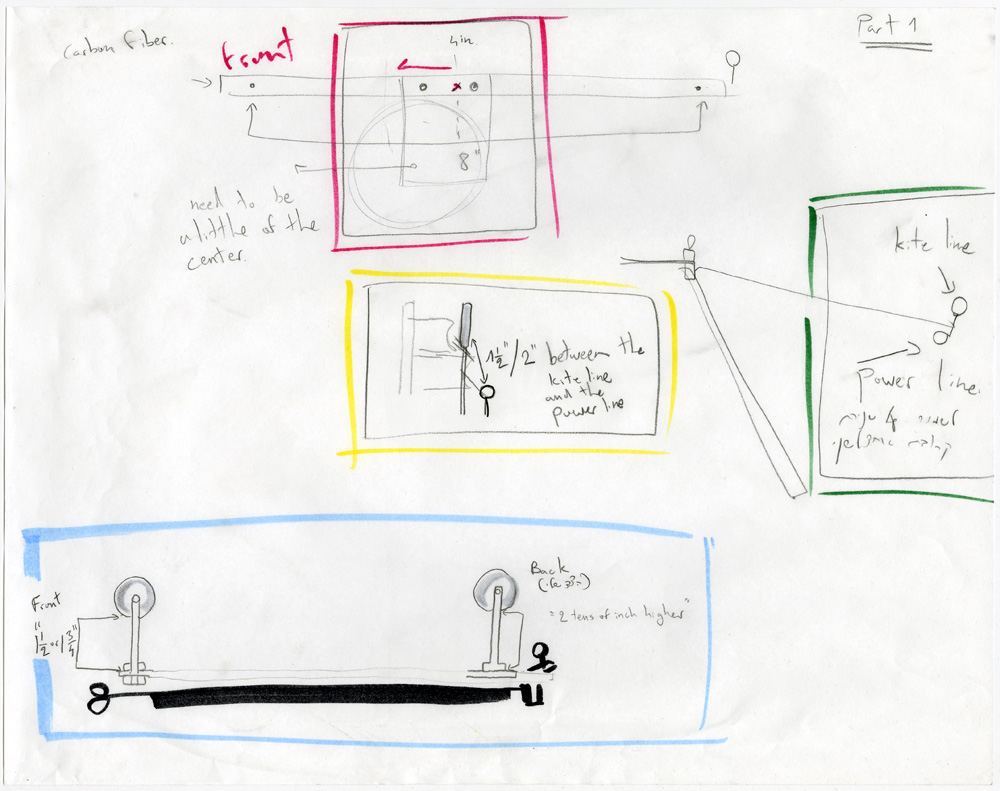 Part 1
Carbon Fiber.
Front
4in.
8"
need to be
a little of the
center.
kite line
Power line
1 1/2"/2" between the
kite line
and the
power line
Front
1 1/2 or 1 3/4"
Back
=2 tens of inch higher"